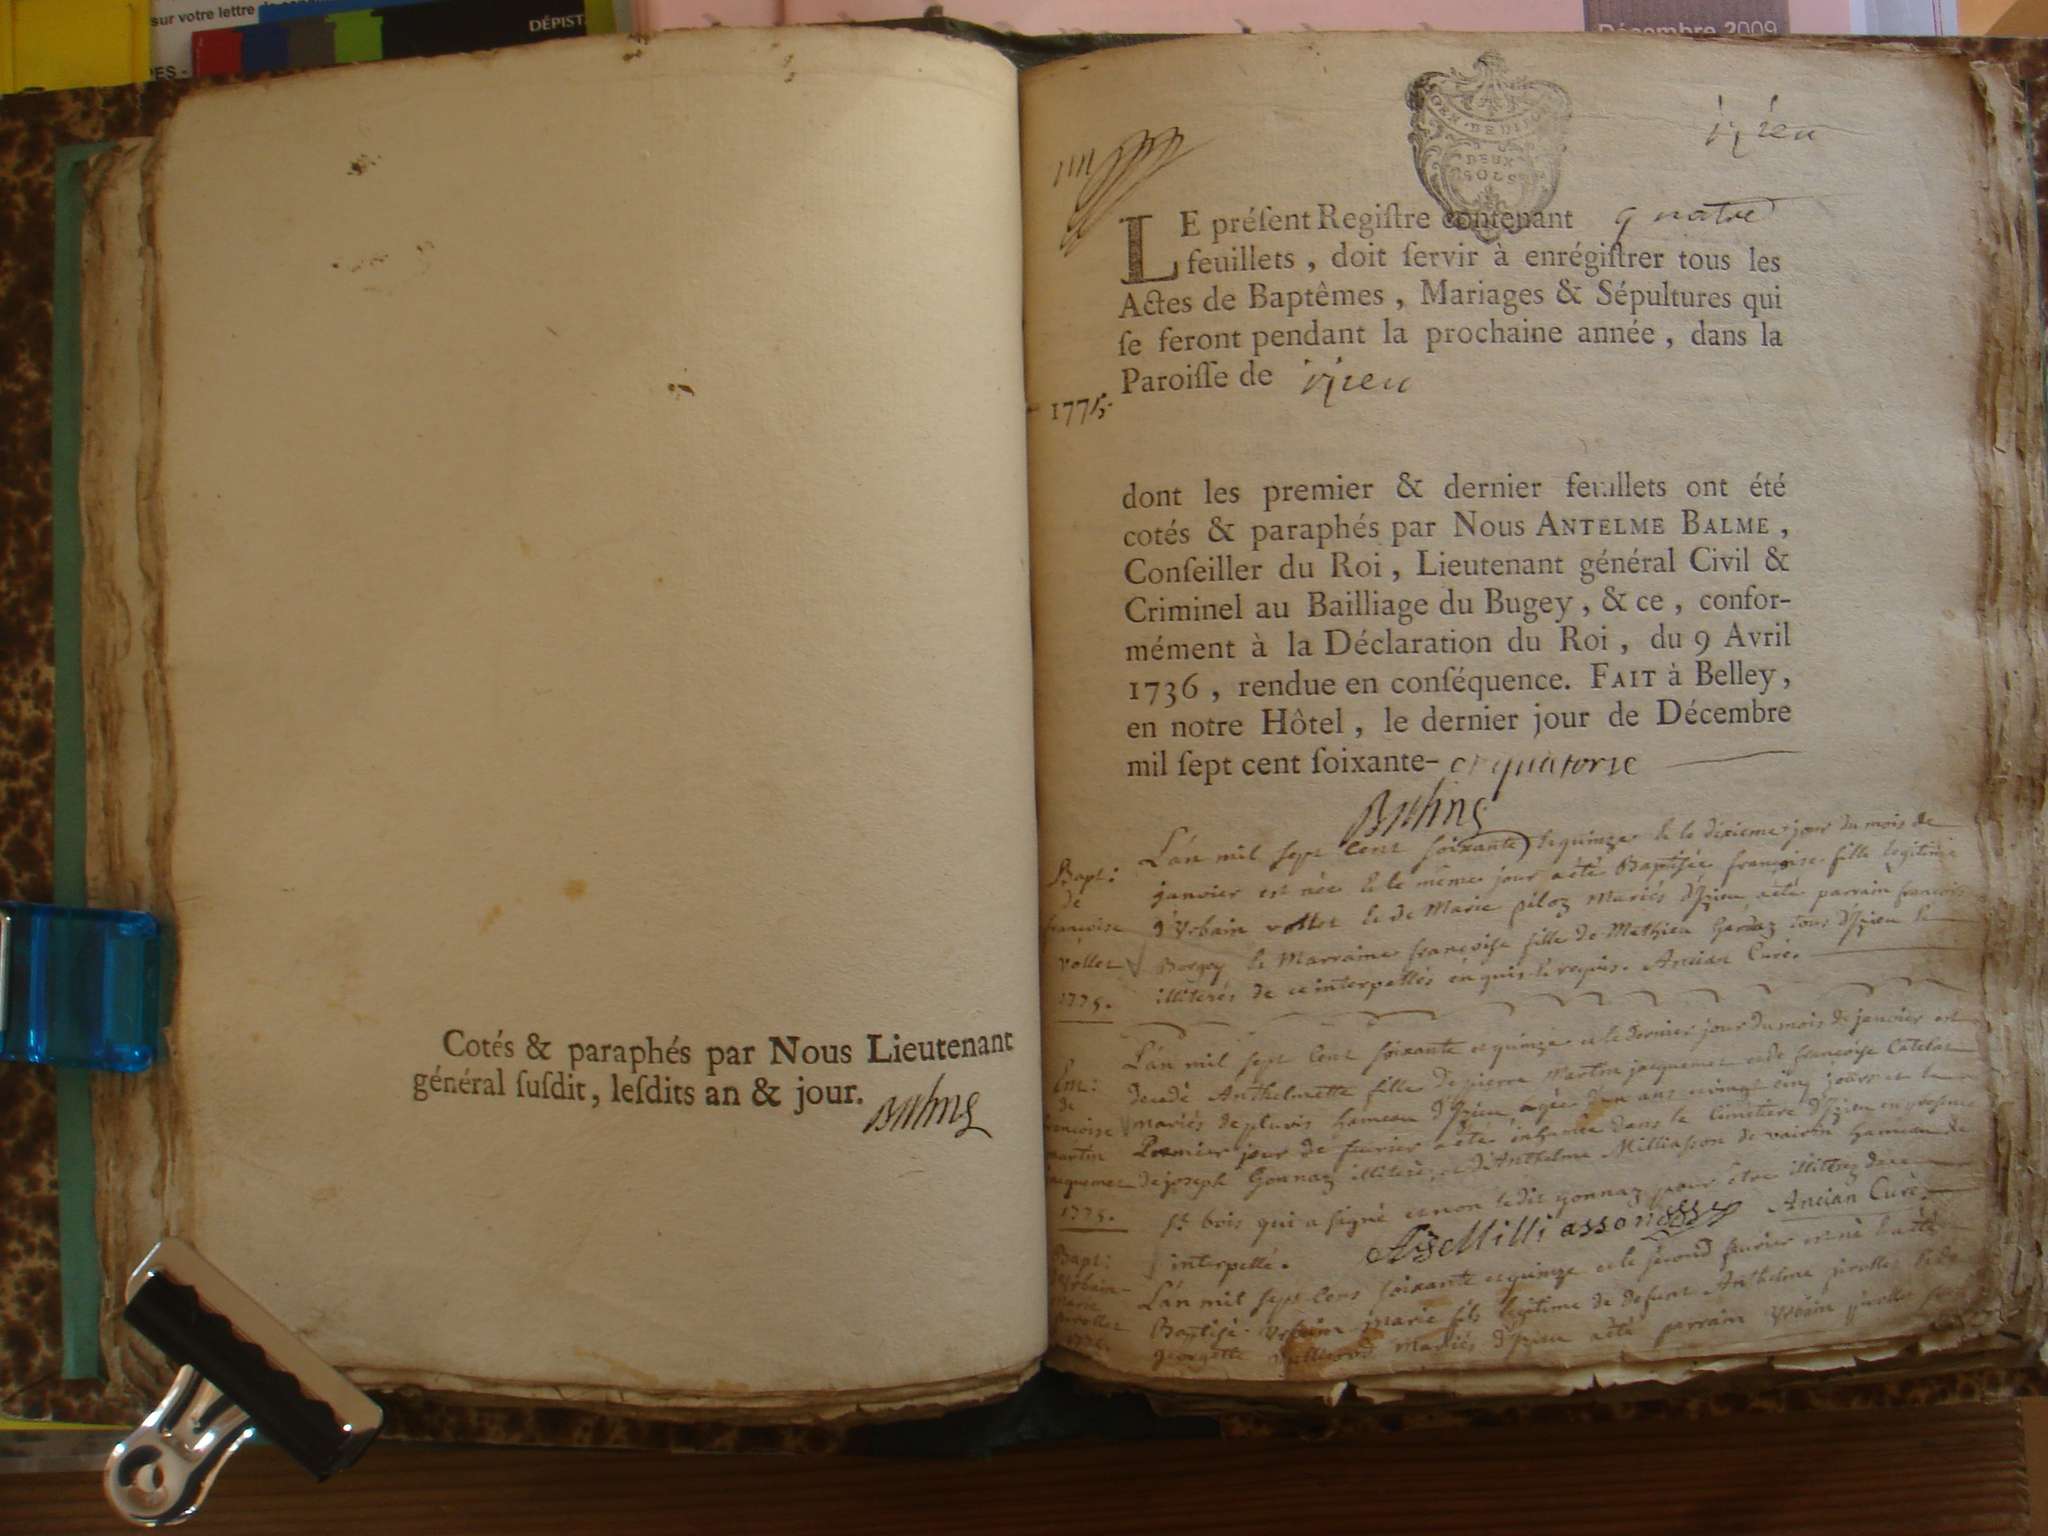 sur votre lettre
DÉPIST
Décembre 2009
Cotés & paraphés par Nous Lieutenant
général ſuſdit, leſdits an & jour.
Balme
izieu
DEUX
SOLS
LE préſent Regiſtre contenant quatre
feuillets, doit ſervir à enrégiſtrer tous les
Actes de Baptêmes, Mariages & Sépultures qui
ſe feront pendant la prochaine année, dans la
Paroiſſe de izieu
1775.
dont les premier & dernier feuillets ont été
cotés & paraphés par Nous ANTELME BALME,
Conſeiller du Roi, Lieutenant général Civil &
Criminel au Bailliage du Bugey, & ce, confor-
mément à la Déclaration du Roi, du 9 Avril
1736, rendue en conſéquence. FAIT à Belley,
en notre Hôtel, le dernier jour de Décembre
mil ſept cent ſoixante- et quatorze
Balme
Bapt:
de
françoise
Vollet
1775.
L'an mil sept cent soixante & quinze & le dixieme jour du mois de
janvier est née & le même jour a été Baptisée françoise fille legitime
d'Urbain vollet & de Marie piloz mariés d'Izieu a été parrain françois
Borgey & Marraine françoise fille de Mathieu Gardaz tous d'Izieu &
illiterés de ce interpellés enquis & requis. Ancian Curé.
Ent:
de
françoise
martin
jacquemet
1775.
L'an mil sept cent soixante et quinze et le dernier jour du mois de janvier est
decedé Anthelmette fille de pierre Martin jacquemet et de françoise Catelas
mariés de pluvis hameau d'Izieu agée d'un ans et vingt cinq jours et le
Premier jour de fevrier a été inhumée dans le cimetière d'Izieu en presence
de joseph Gonnaz illiteré, & d'Anthelme Milliasson de hameau de
St bois qui a signé et non le dit gonnaz pour être illiterez de ce
interpellé. Milliasson Ancian Curé.
Bapt:
d'Urbain
Marie
1775.
L'an mil sept cens soixante et quinze et le second fevrier est né & a été
Baptisé Urbain marie fils legitime de defunt Anthelme & de
georgette mariés d'Izieu a été parrain Urbain